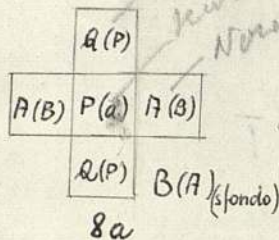 Q(P)
A(B) P(a) A(B)
Q(P) B(A) (sfondo)
8a